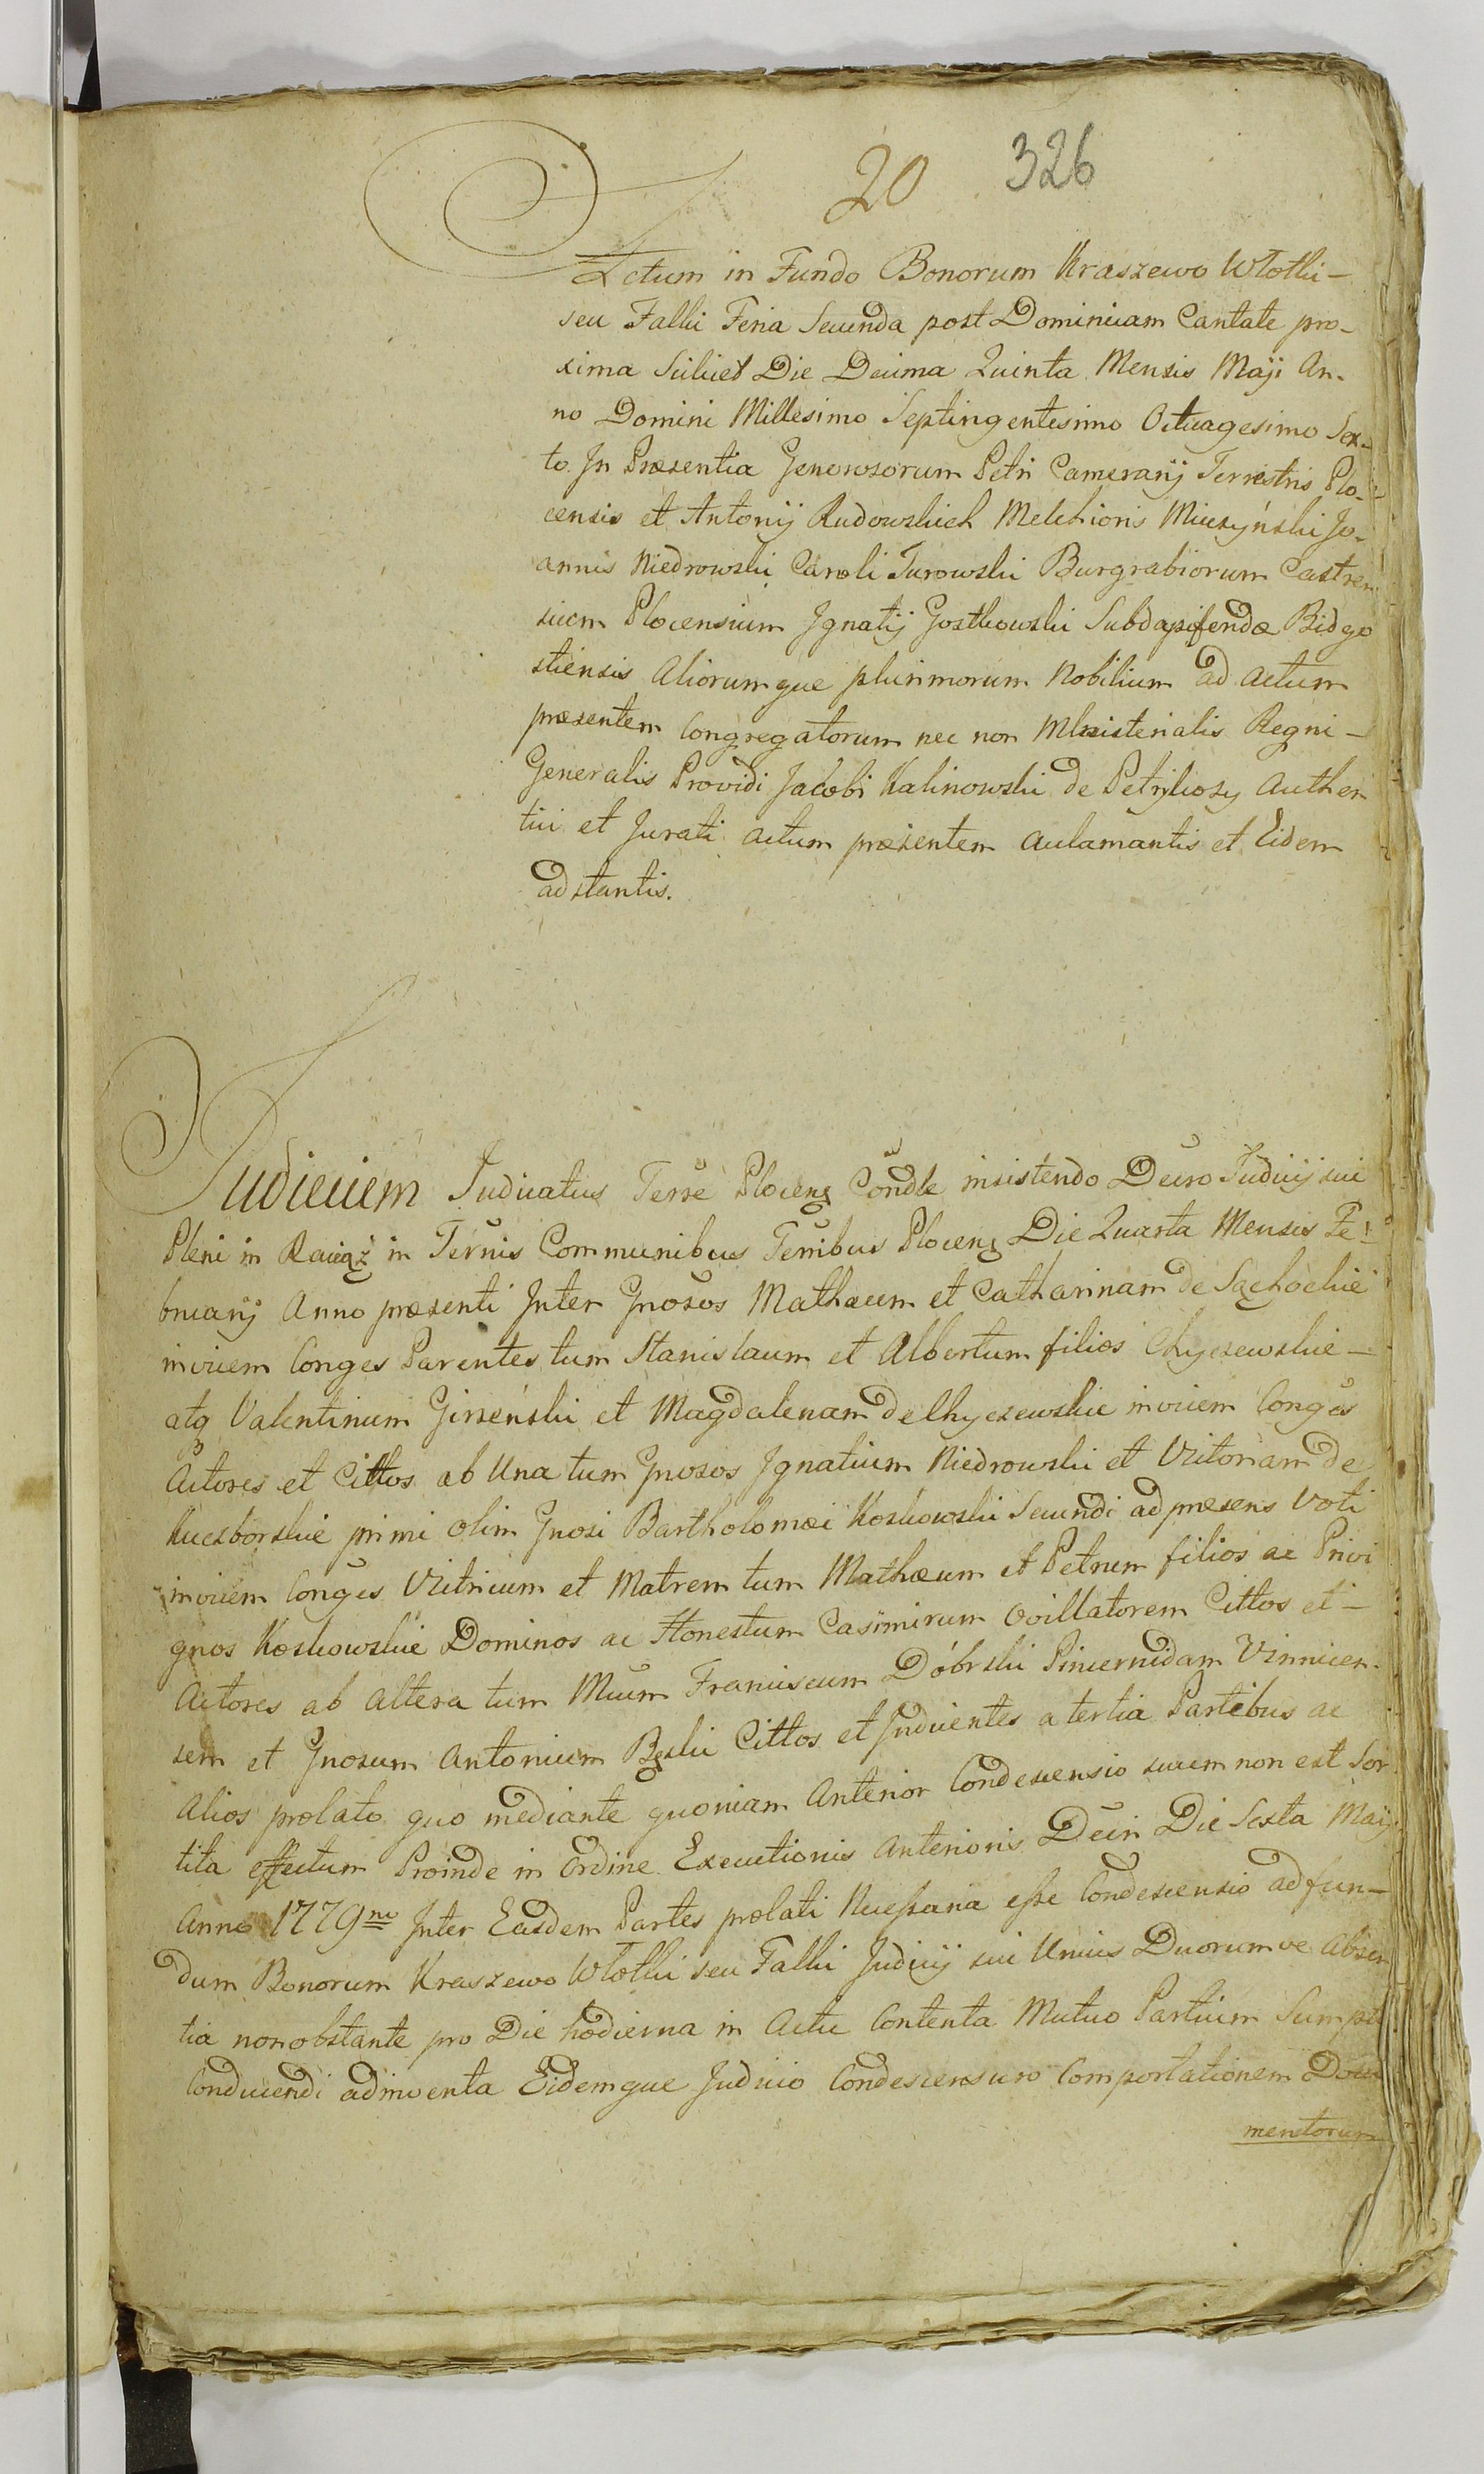 20 326
Actum in Fundo Bonorum Kraszewo Wtotki-
seu Falki Feria Secunda post Dominicam Cantate pro-
xima Scilicet Die Decima Quinta Mensis Maji An-
no Domini Millesimo Septingentesimo Octuagesimo Sex-
to. In Præsentia Generosorum Petri Camerarij Terrestris Plo-
censis et Antonij Rudowskich Melchioris Miczyński Jo-
annis Niedrowski Caroli Turowski Burgrabiorum Castren
sium Plocensium Ignatij Gostkowski Subdapiferidæ Bidgo
stiensis Aliorumque plurimorum Nobilium ad actum
præsentem Congregatorum nec non Ministerialis Regni-
Generalis Providi Jacobi Kalinowski de Petrykozy Authen
tici et Jurati actum præsentem aclamantis et Eidem
adstantis.
Judicium Judicatus Terræ Plocens Condle insistendo Decro Judicij sui
Pleni in Raciąż in Ternis Communibus Terribus Plocens Die Quarta Mensis Fe-
bruarij Anno præsenti Inter Gnosos Mathæum et Catharinam de Sąchockie
invicem Conges Parentes tum Stanislaum et Albertum filios Chyczewskie-
atq Valentinum Girzeński et Magdalenam de Chyczewskie invicem Conges
Actores et Cittos ab Una tum Gnosos Ignatium Niedrowski et Victoriam de
Kuczborskie primi olim Gnosi Bartholomæi Koskowski Secundi ad præsens Voti
invicem Conges Vitricum et Matrem tum Mathæum et Petrum filios ac Privi
gnos Koskowskie Dominos ac Honestum Casimirum Ovillatorem Cittos et-
Actores ab altera tum Mcum Franciscum Dóbrski Pincernidam Vinnicen-
sem et Gnosum Antonium Bęski Cittos et Inducentes a tertia Partibus ac
Alios prolato quo mediante quoniam Anterior Condescensio suum non est Sor
tita effectum Proinde in Ordine Executionis Anterioris Decri Die Sexta Maij
Anno 1779no Inter Easdem Partes prolati Necessaria esse Condescensio ad fun-
dum Bonorum Kraszewo Wtotki seu Falki Judicij sui Unius Duorumve Absen
tia non obstante pro Die hodierna in Actu Contenta Mutuo Partium Sumptu
Conducendi adinventa Eidemque Judicio Condescensuro Comportationem Docu
mentorum